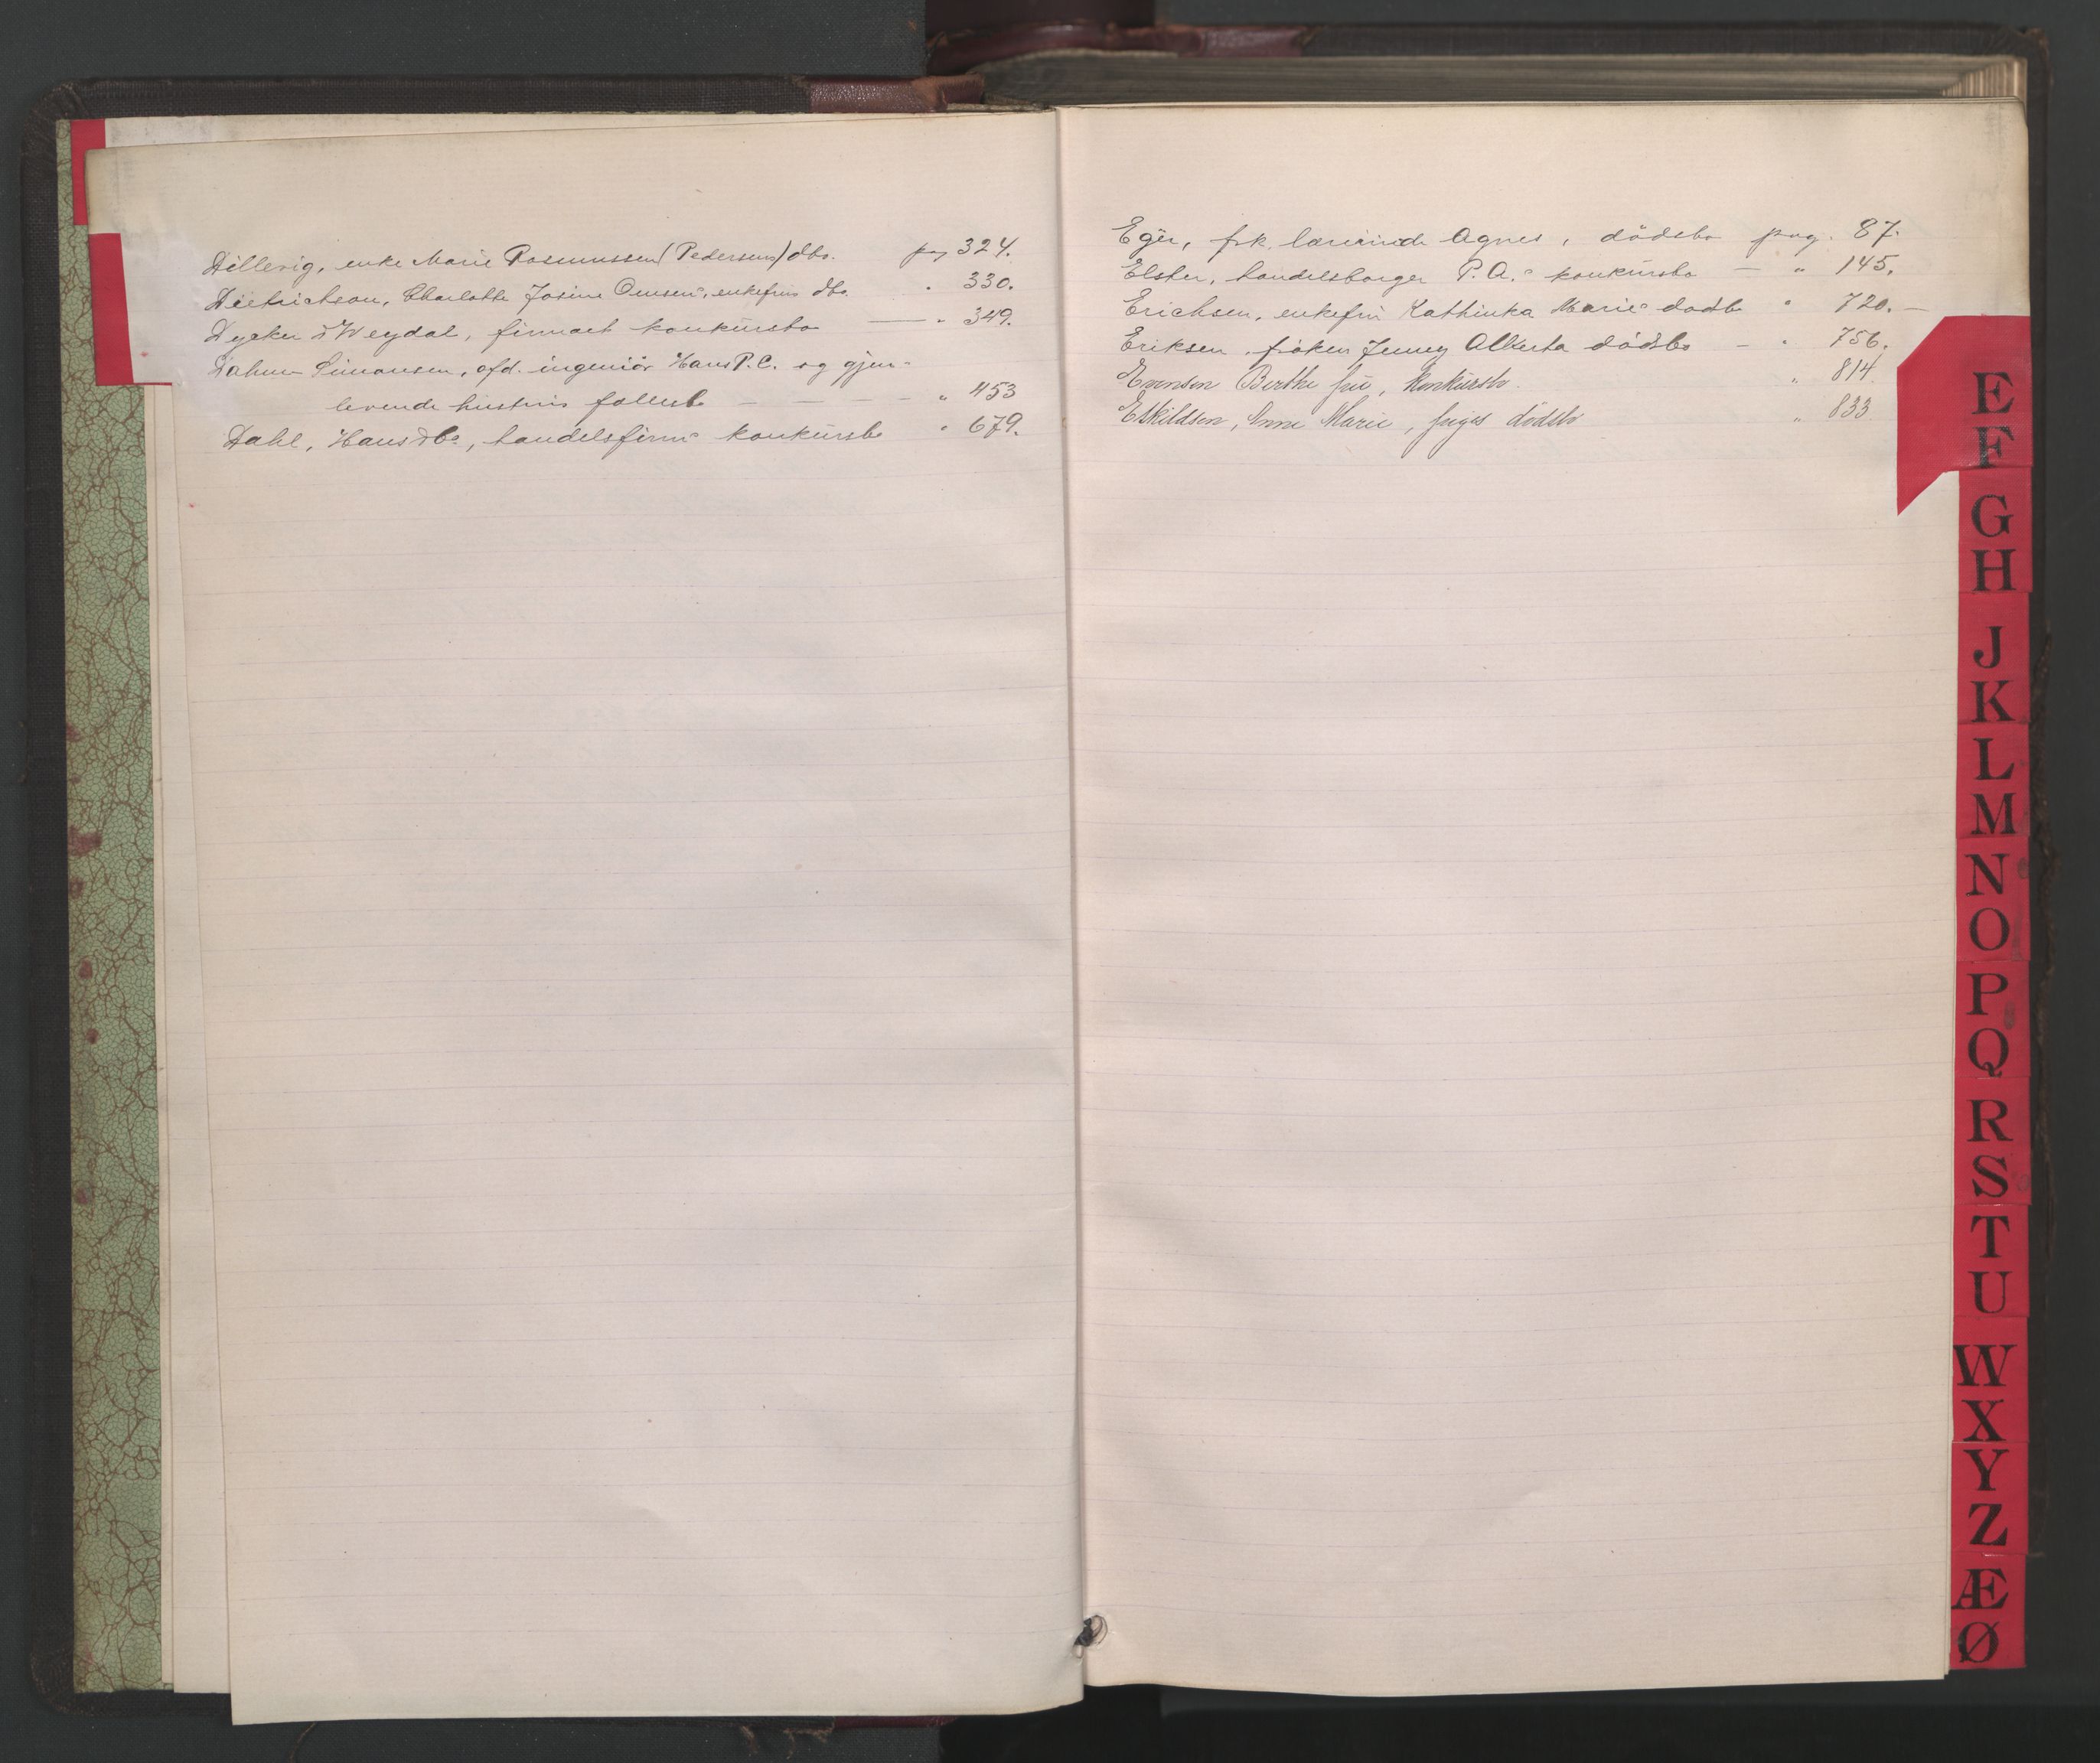 Dillevig, enke Marie Rasmussen (Pedersens) dbo. pag 324.
Dietrichson, Charlotte Josine Omsens, enkefrus dbo. " 330.
Dycker & Weydal, firmaet konkursbo — " 349.
Dahm Simonsen, afd. ingeniör Hans P. C. og gjen-
levende hustrus fællesbo — — — — " 453
Dahl, Hans & Co, handelsfirma konkursbo " 679.
Eger, frk. lærerinde Agnes, dödsbo pag. 87.
Elster, handelsborger P. A.s konkursbo — " 145.
Erichsen, enkefru Kathinka Maries dödsbo " 720. —
Eriksen, fröken Jenney Alberta dödsbo — " 756.
Evensen Berthe fru, Konkursbo. " 814
Eskildsen, Anne Marie, piges dödsbo " 833
E
F
G
H
J
K
L
M
N
O
P
Q
R
S
T
U
W
X
Y
Z
Æ
Ø